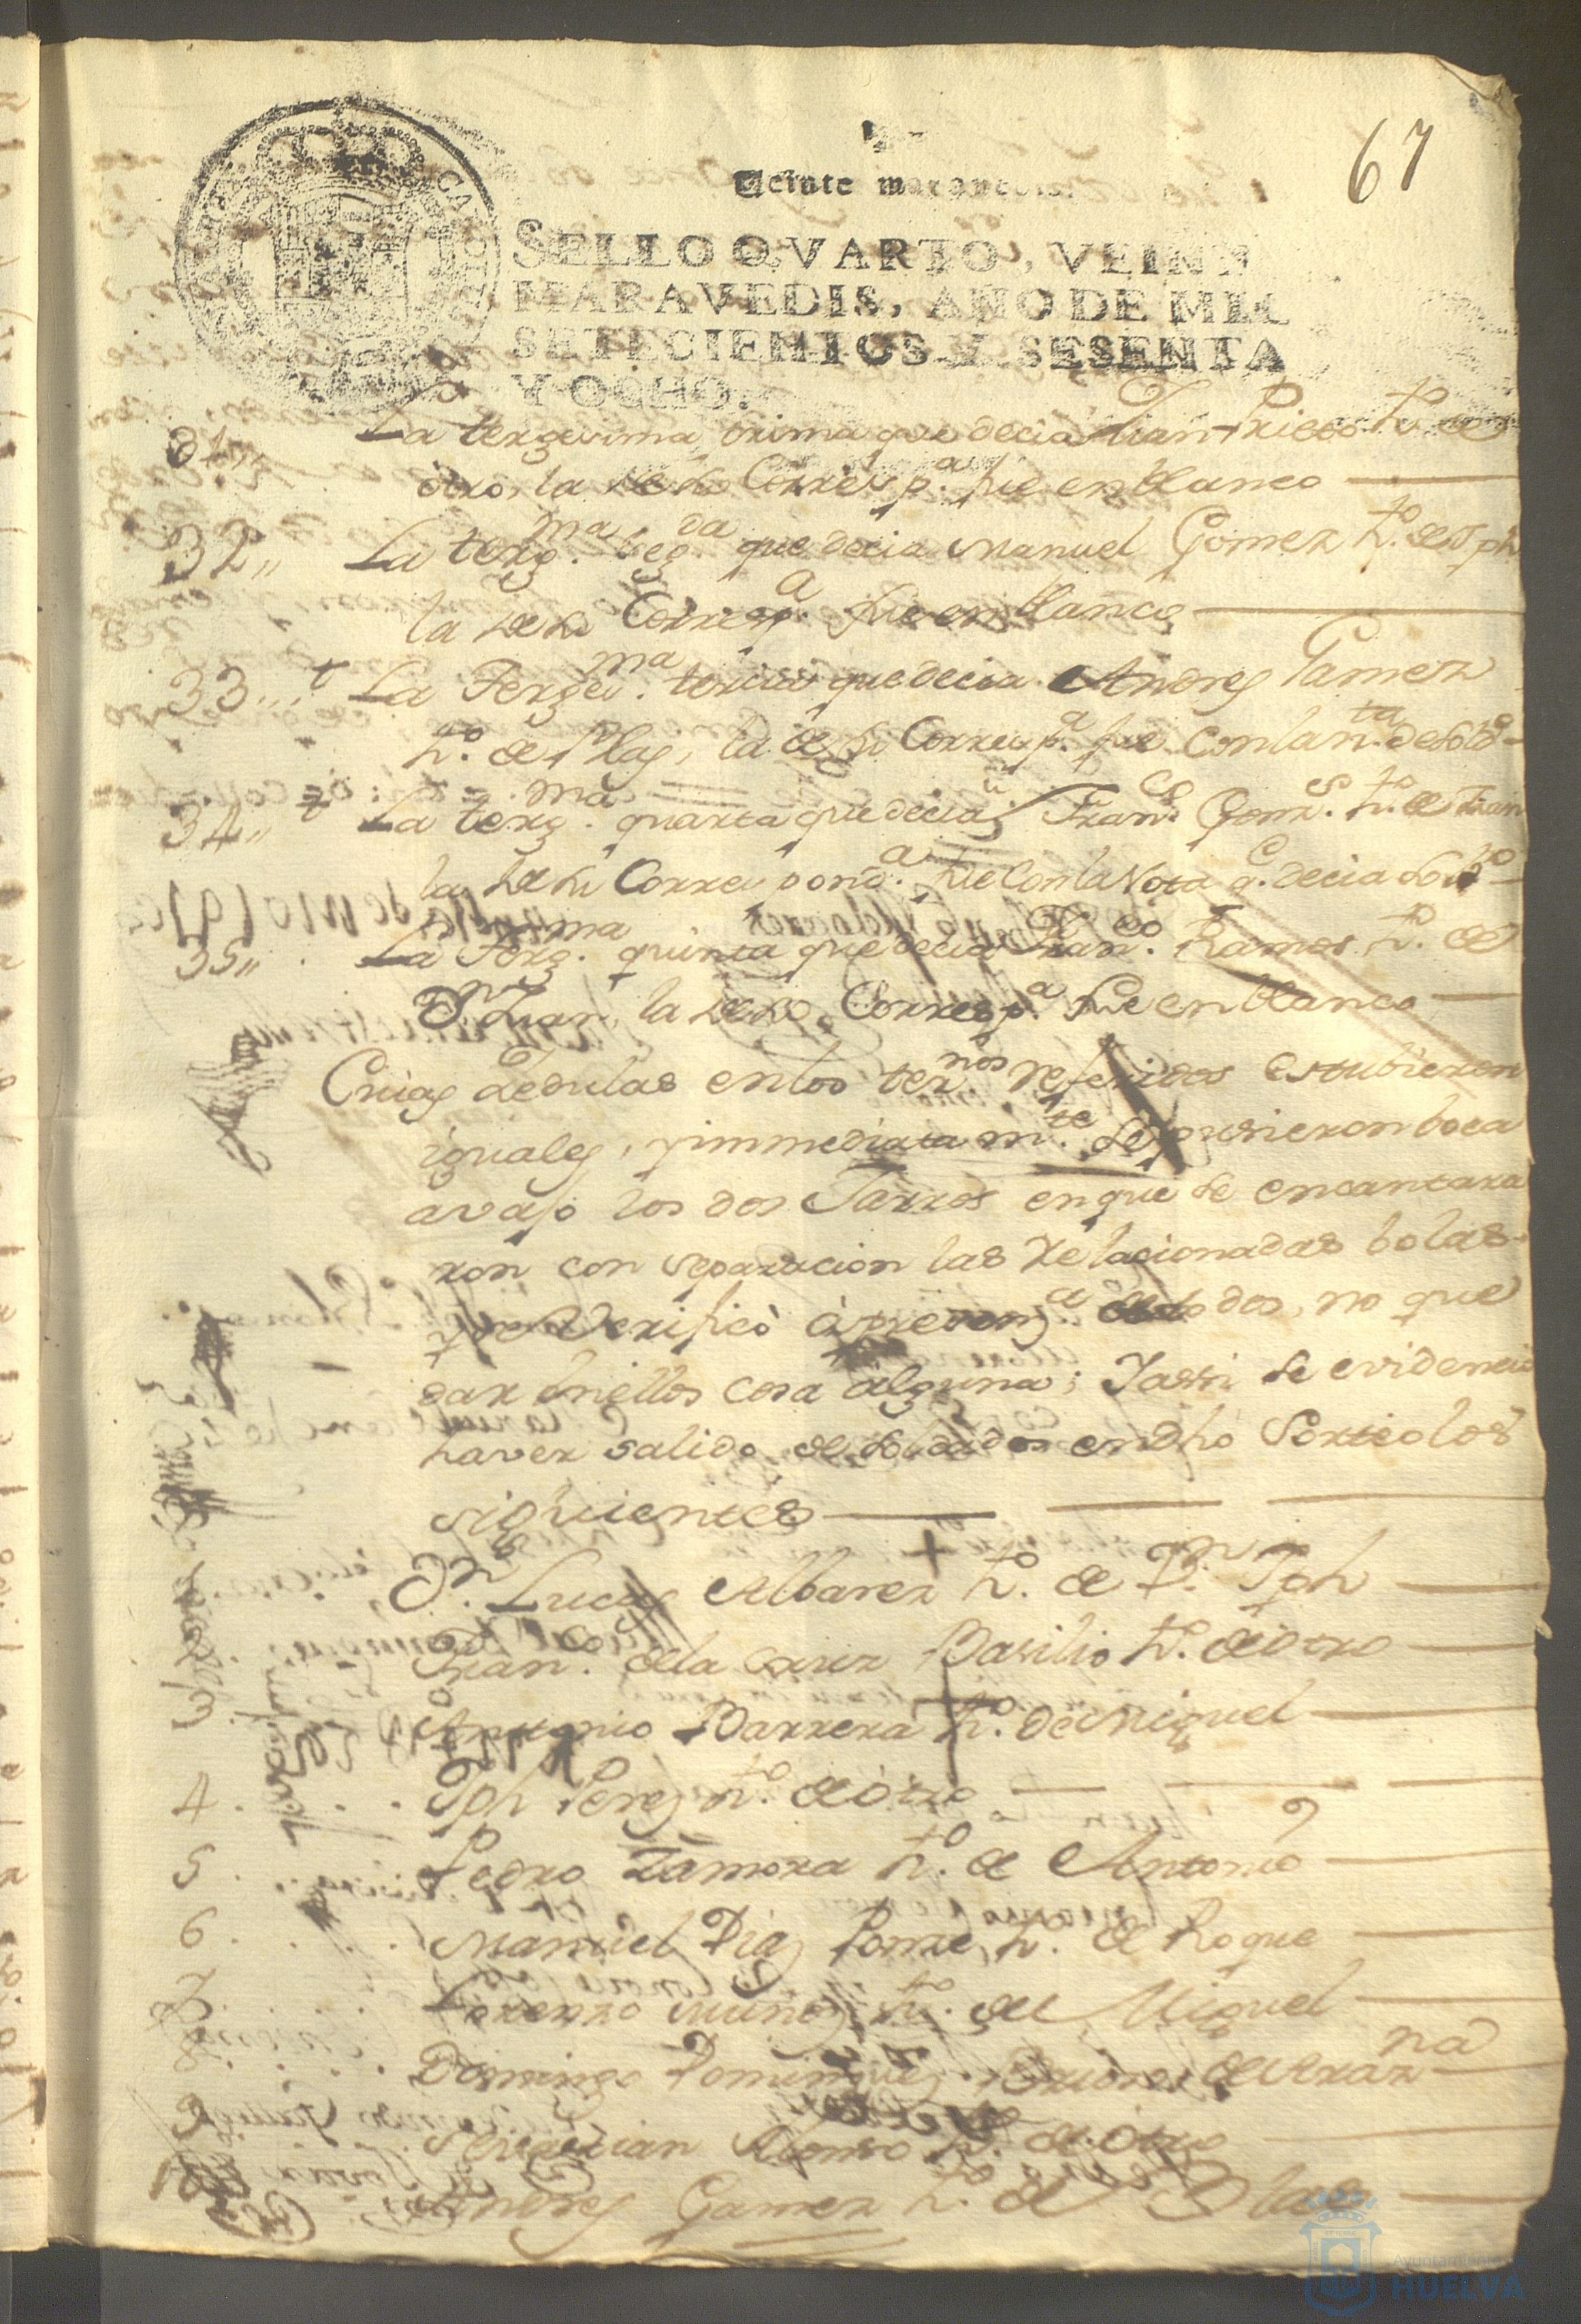 67
Veinte maravedis.
SELLO QVARTO, VEINTE
MARAVEDIS, AÑO DE MIL
SETECIENTOS Y SESENTA
Y OCHO.
31,, La tergesima prima que decia Juan Prieto h.º de
otro, la de su Corresp.ª fue en blanco
32,, La terg.ma seg.da que decia Manuel Gomez h.º de Jph
la de su Corresp.ª fue en blanco
33,, La Terge.ma tercia que decia Andres Gamez
h.º de Blas, la de su Corresp.ª fue con la n.ta de sold.º
34,, La terg.ma quarta que decia Fran.co Gonz.s h.º de Juan
la de su Correspond.ª fue con la Nota q.e decia sold.º
35,, La Terg.ma quinta que decia Fran.co Ramos h.º de
D.n Juan, la de su Corresp.ª fue en blanco
Cuias Zedulas en los ter.nos referidos estubieron
iguales, y immediatam.te se pusieron boca
avajo los dos Jarros en que se encantara
ron con separacion las relacionadas bolas
y se Verificò à presenz.ª de todos, no que
dar en ellos cosa alguna; Y assi se evidencia
haver salido de soldados en dho Sorteo los
siguientes
D.n Lucas Albarez h.º de D.n Jph
Fran.co de la Cruz Basilio h.º de otro
3. Antonio Barrera h.º de Miguel
4. Jph Perez h.º de otro
5. Pedro Zamora h.º de Antonio
6. Manuel Diaz Ponze h.º de Roque
7. Lorenzo Muñoz h.º de Miguel
8. Domingo Dominguez
9. Sebastian Alonso h.º de otro
10 Andres Gamez h.º de Blas
Ayuntamiento
HUELVA